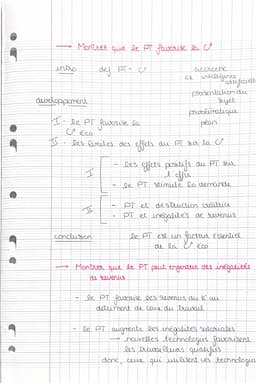 → Montrer que le PT favorise la C°
intro déf PT - C° accroche
ex intelligence artificielle
présentation du sujet
problématique
plan
développement
I - le PT favorise la C° éco
II - les limites des effets du PT sur la C°
I - les effets positifs du PT sur l'offre
- le PT stimule la demande
II - PT et destruction créatrice
- PT et inégalités de revenus
conclusion le PT est un facteur essentiel
de la C° éco
→ Montrer que le PT peut engendrer des inégalités
de revenus
- le PT favorise les revenus du K au
détriment de ceux du travail
- le PT augmente les inégalités salariales
→ nouvelles technologies favorisent
les travailleurs qualifiés
donc, ceux qui utilisent ces technologies